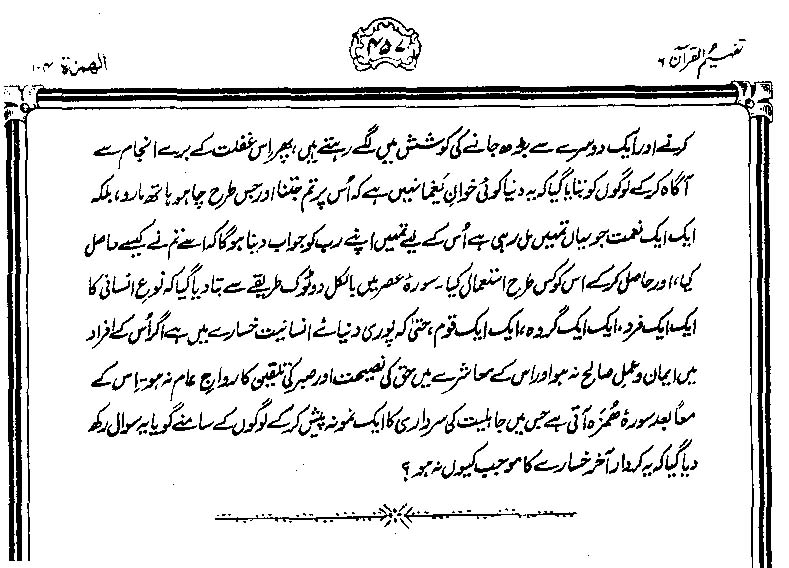 تفہیم القرآن ۶
۴۵۷
الھمزۃ ۱۰۴
کرنے اور ایک دوسرے سے بڑھ جانے کی کوشش میں لگے رہتے ہیں، پھر اِس غفلت کے برے انجام سے
آگاہ کرکے لوگوں کو بتایا گیا کہ یہ دنیا کوئی خوانِ یَغما نہیں ہے کہ اُس پر تم جتنا اور جس طرح چاہو ہاتھ مارو، بلکہ
ایک ایک نعمت جو یہاں تمہیں مل رہی ہے اُس کے لیے تمہیں اپنے رب کو جواب دینا ہوگا کہ اسے تم نے کیسے حاصل
کیا، اور حاصل کرکے اس کو کس طرح استعمال کیا۔ سورۂ عصر میں بالکل دوٹوک طریقے سے بتا دیا گیا کہ نوعِ انسانی کا
ایک ایک فرد، ایک ایک گروہ، ایک ایک قوم، حتیٰ کہ پوری دنیائے انسانیت خسارے میں ہے اگر اُس کے افراد
میں ایمان و عمل صالح نہ ہو اور اس کے معاشرے میں حق کی نصیحت اور صبر کی تلقین کا رواجِ عام نہ ہو۔ اِس کے
معاً بعد سورۂ ھُمَزَہ آتی ہے جس میں جاہلیت کی سرداری کا ایک نمونہ پیش کرکے لوگوں کے سامنے گویا یہ سوال رکھ
دیا گیا کہ یہ کردار آخر خسارے کا موجب کیوں نہ ہو؟